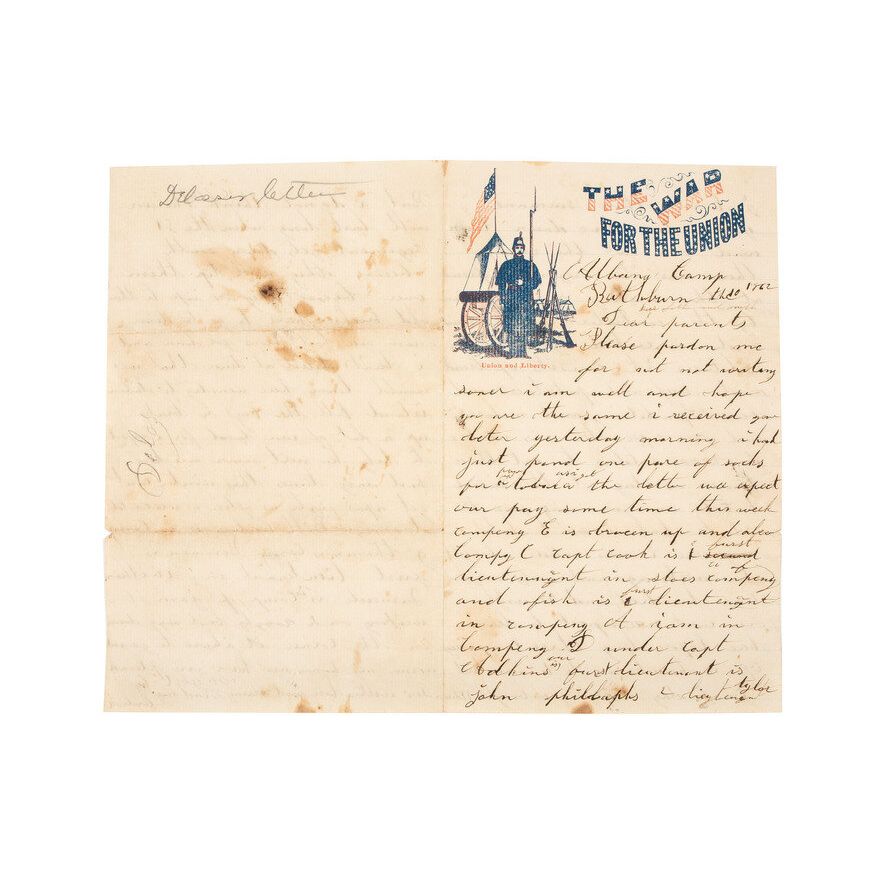 letter
THE WAR
FOR THE UNION
Union and Liberty.
Albany Camp
Rathburn the 10 1862
Dear parents
Please pardon me
for not not writing
soner i am well and hope
you are the same i received you
leter yesterday morning i had
just one pare of socks
for the letter we expect
our pay some time this week
compeny E is brocen up and also
Compy C capt cook is furst
lieutennynt in compeny
and fish is furst lieutenynt
in compeny A i am in
Compeny D under capt
Adkins our furst lieutenant is
john philaphs tylor